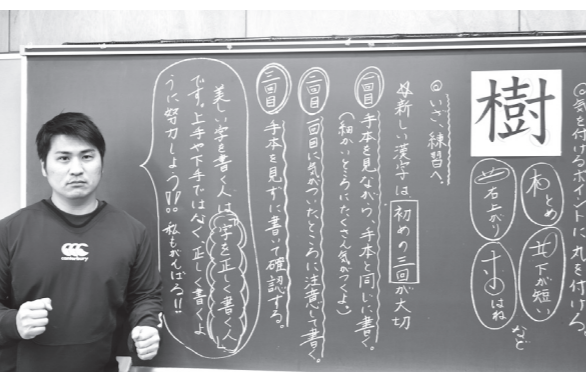 ◎気を付けるポイントに丸を付けろう。
樹
とめ
下が短い
右上がり
はね
など
◎いざ、練習へ。
新しい漢字は初めの三回が大切
一回目 手本を見ながら、手本と同じに書く。
(細かいところにたくさん気がつくよ)
二回目 一回目に気がついたところに注意して書く。
三回目 手本を見ずに書いて確認する。
美しい字を書く人は「字を正しく書く人」
です。上手や下手ではなく、正しく書くよ
うに努力しよう!! 私もがんばろう!!
CCC
canterbury